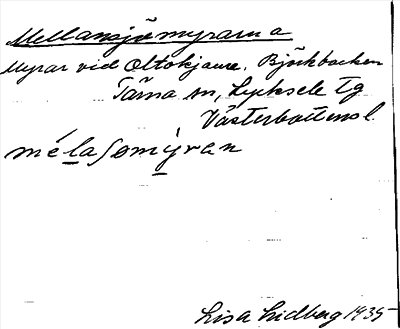 Mellansjömyrarna
Myrar vid Oltokjaure, Björkbacken
Tärna sn, Lycksele tg
Västerbottens l.
mélasomỳran
Lisa Lidberg 1935